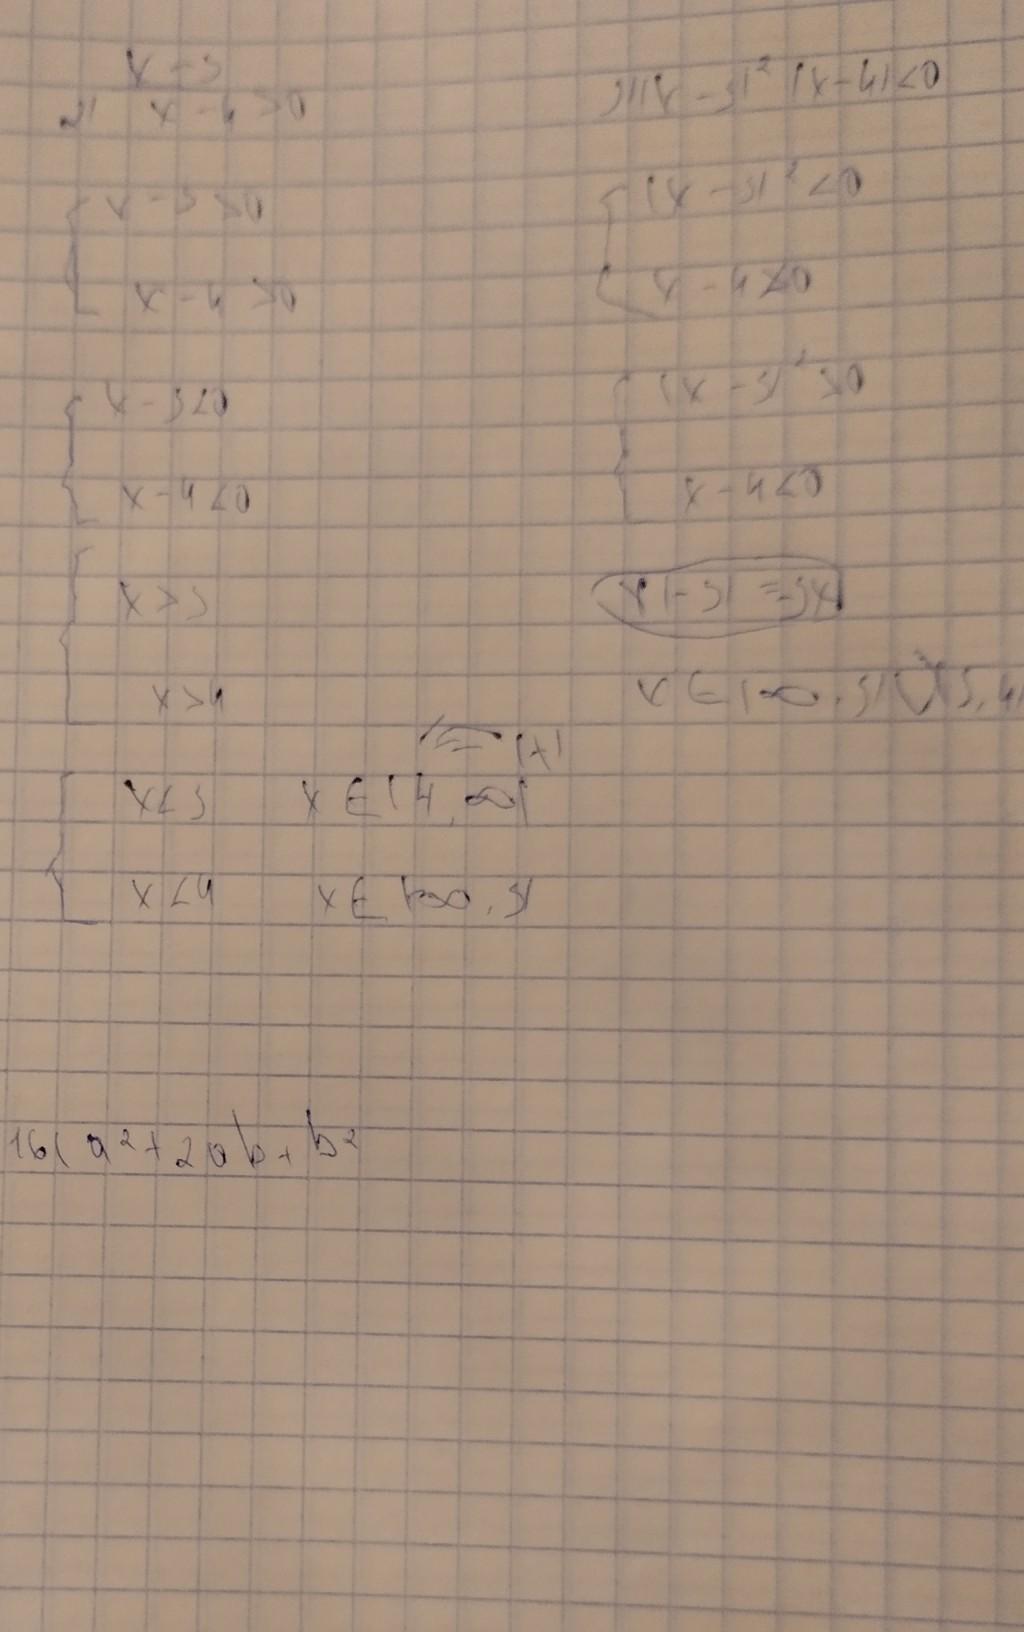 x - 3
2) x - 4 > 0
{ x - 3 > 0
x - 4 > 0
{ x - 3 < 0
x - 4 < 0
{ x > 3
x > 4
{ x < 3 x ∈ (4, ∞)
x < 4 x ∈ (-∞, 3)
3) (x - 3)² (x - 4) < 0
{ (x - 3)² < 0
x - 4 > 0
{ (x - 3)² > 0
x - 4 < 0
x (-3) = -3x
x ∈ (-∞, 3) ∪ (3, 4)
16( a² + 2ab + b²